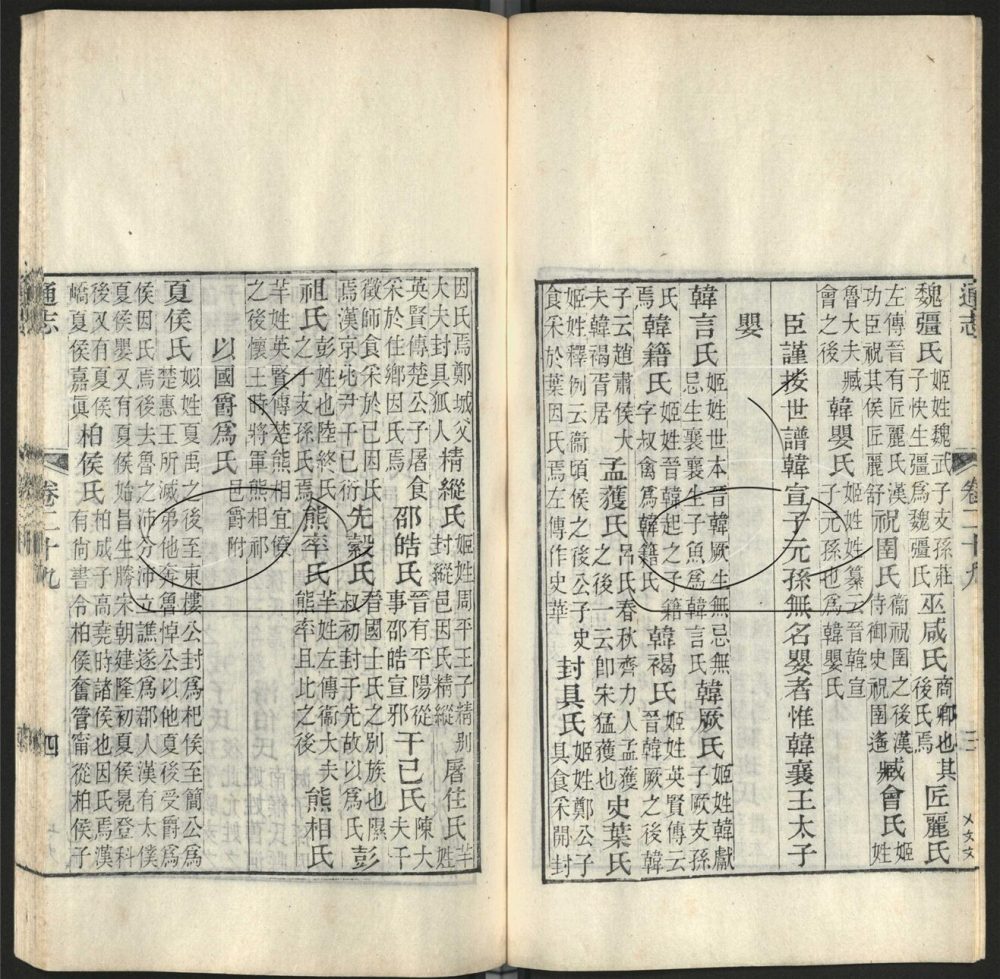 通志 卷二十九 三
魏彊氏姬姓魏武子支孫莊子快生彊爲魏彊氏巫咸氏商卿也其後氏焉匠麗氏
左傳晉有匠麗氏漢功臣祝其侯匠麗舒祝圉氏衞祝圉之後漢侍御史祝圉遙臧會氏姬姓
魯大夫臧會之後韓嬰氏姬姓姓纂云晉韓宣子元孫也爲韓嬰氏
臣謹按世譜韓宣子元孫無名嬰者惟韓襄王太子
嬰
韓言氏姬姓世本晉韓厥生無忌無忌生襄襄生子魚爲韓言氏韓厥氏姬姓韓獻子厥支孫
氏焉韓籍氏姬姓晉韓起之子籍字叔禽爲韓籍氏韓褐氏姬姓英賢傳云晉韓厥之後韓
子云趙肅侯大夫韓褐胥居孟獲氏呂氏春秋齊力人孟獲之後一云卽宋猛獲也史葉氏
姬姓釋例云衞頃侯之後公子史食采於葉因氏焉左傳作史華封具氏姬姓鄭公子具食采開封
因氏焉鄭城父大夫封具狐人精縱氏姬姓周平王子精别封縱邑因氏精縱屠住氏芈姓
英賢傳楚公子屠食采於住鄉因氏焉邵皓氏晉有平陽從事邵皓宣邪干己氏陳大夫干
徵師食采於己因氏焉漢京兆尹干己衍先縠氏晉國士氏之别族也隰叔初封于先故以爲氏彭
祖氏彭姓也陸終氏之子支孫氏焉熊率氏芈姓左傳衞大夫熊率且比之後熊相氏
芈姓英賢傳楚熊相宜僚之後懷王時將軍熊相祁
以國爵爲氏邑爵附
夏侯氏姒姓夏禹之後至東樓公封爲杞侯至簡公爲楚惠王所滅弟他奔魯悼公以他夏後受爵爲
侯因氏焉後去魯之沛分沛立譙遂爲郡人漢有太僕夏侯嬰又有夏侯始昌生騰宋朝建隆初夏侯晃登科
後又有夏侯嶠夏侯嘉眞柏侯氏柏成子高堯時諸侯也因氏焉漢有尚書令柏侯奮管甯從柏侯子
通志 卷二十九 四